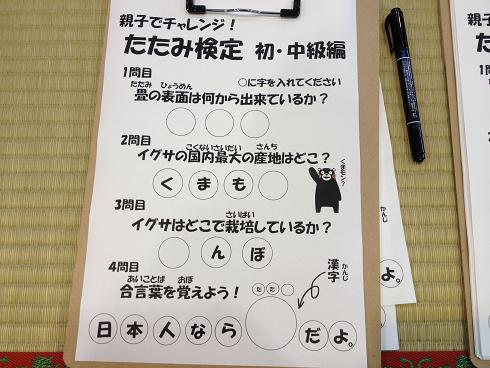 親子でチャレンジ！
たたみ検定 初・中級編
1問目
○に字を入れてください
たたみ ひょうめん
畳の表面は何から出来ているか？
2問目
こくないさいだい さんち
イグサの国内最大の産地はどこ？
くまも
くまモン？
3問目
さいばい
イグサはどこで栽培しているか？
んぼ
4問目
あいことば おぼ
合言葉を覚えよう！
たた
漢字
かんじ
日本人なら だよ。
よ。